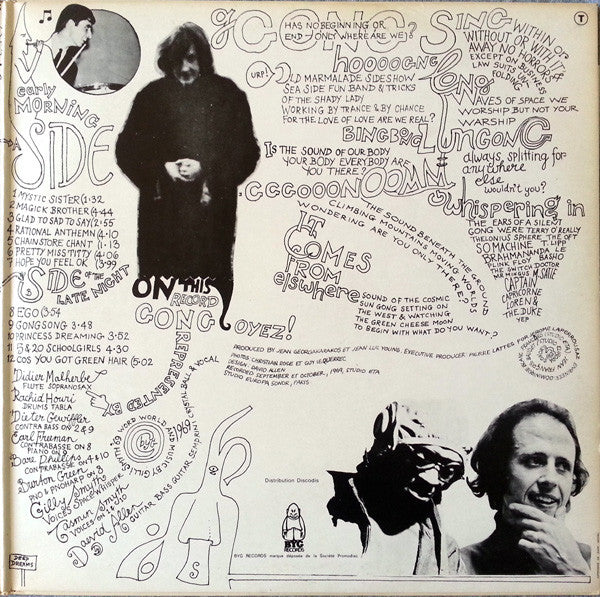 T
early
MORNING
SIDE
1 MYSTIC SISTER (1·32
2 MAGICK BROTHER (4·44
3 GLAD TO SAD TO SAY (2·55
4 RATIONAL ANTHEM (4·10
5 CHAINSTORE CHANT (1·13
6 PRETTY MISS TITTY (4·06
7 HOPE YOU FEEL OK (3·99
SIDE OF THE
LATE NIGHT
8 EGO (3·54
9 GONGSONG 3·48
10 PRINCESS DREAMING 3·52
11 5 & 20 SCHOOLGIRLS 4·30
12 COS YOU GOT GREEN HAIR (5·02
Didier Malherbe
FLUTE SOPRANOSAX
Rachid Houri
DRUMS TABLA
Dieter Gewissler
CONTRA BASS ON 2 & 9
Earl Freeman
CONTRABASSE ON 8
PIANO ON 9
Barre Phillips
CONTRABASSE ON 4 & 10
Burton Green
PNO & PNOHARP ON 8
Gilly Smyth
VOICES SPACEWHISPER
Tasmin Smyth
VOICES ON 4, 5, 10
David Allen
GUITAR BASS GUITAR
VOCAL
DEED
DREAMS
GONG SING
HAS NO BEGINNING OR
END - ONLY WHERE ARE WE?
WITHIN OR
WITHOUT OR WITH FEE
AWAY NO HORRORS
EXCEPT ON BUSINESS
LAW SUITS UN-
FOLDING
hoooong
long
URP!
OLD MARMALADE SIDESHOW
SEA SIDE FUN BAND & TRICKS
OF THE SHADY LADY
WORKING BY TRANCE & BY CHANCE
FOR THE LOVE OF LOVE ARE WE REAL?
WAVES OF SPACE WE
WORSHIP BUT NOT YOUR
WARSHIP
BINGBONG LUNGONG
IS THE SOUND OF OUR BODY
YOUR BODY EVERYBODY ARE
YOU THERE?
always, splitting for
anywhere
else
wouldn't you?
GGGOOONOOMN
whispering in
THE EARS OF A SILENT
GONG WERE TERRY O'REALLY
THELONIUS SPHERE THE OFT
SO MACHINE T. LIPP
BRAHMANANDA LE
PLINK FLOY BASHO
THE SWITCH DOCTOR
MINGUS M. SATIE
CAPTAIN
CAPRICORNE
LOREN &
THE DUKE
YEP
THE SOUND BENEATH THE GROUND
CLIMBING MOUNTAINS MOVING WORLDS
WONDERING ARE YOU ONLY THERE?
IT
COMES
FROM
elswhere
SOUND OF THE COSMIC
SUN GONG SETTING ON
THE WEST & WATCHING
THE GREEN CHEESE MOON
TO BEGIN WITH WHAT DO YOU WANT?
ON THIS
RECORD
GONG
REPRESENTED
BY
OYEZ!
WORD WORLD
PRODUCED BY JEAN GEORGAKARAKOS ET JEAN LUC YOUNG. EXECUTIVE PRODUCER PIERRE LATTES FOR
PHOTOS CHRISTIAN ROSE ET GUY LE QUERREC
DESIGN: DAVID ALLEN
RECORDED SEPTEMBER ET OCTOBER, 1969, STUDIO ETA
STUDIO EUROPA SONOR, PARIS
1969
Distribution Discodis
BYG
RECORDS
BYG RECORDS marque déposée de la Société Promodisc